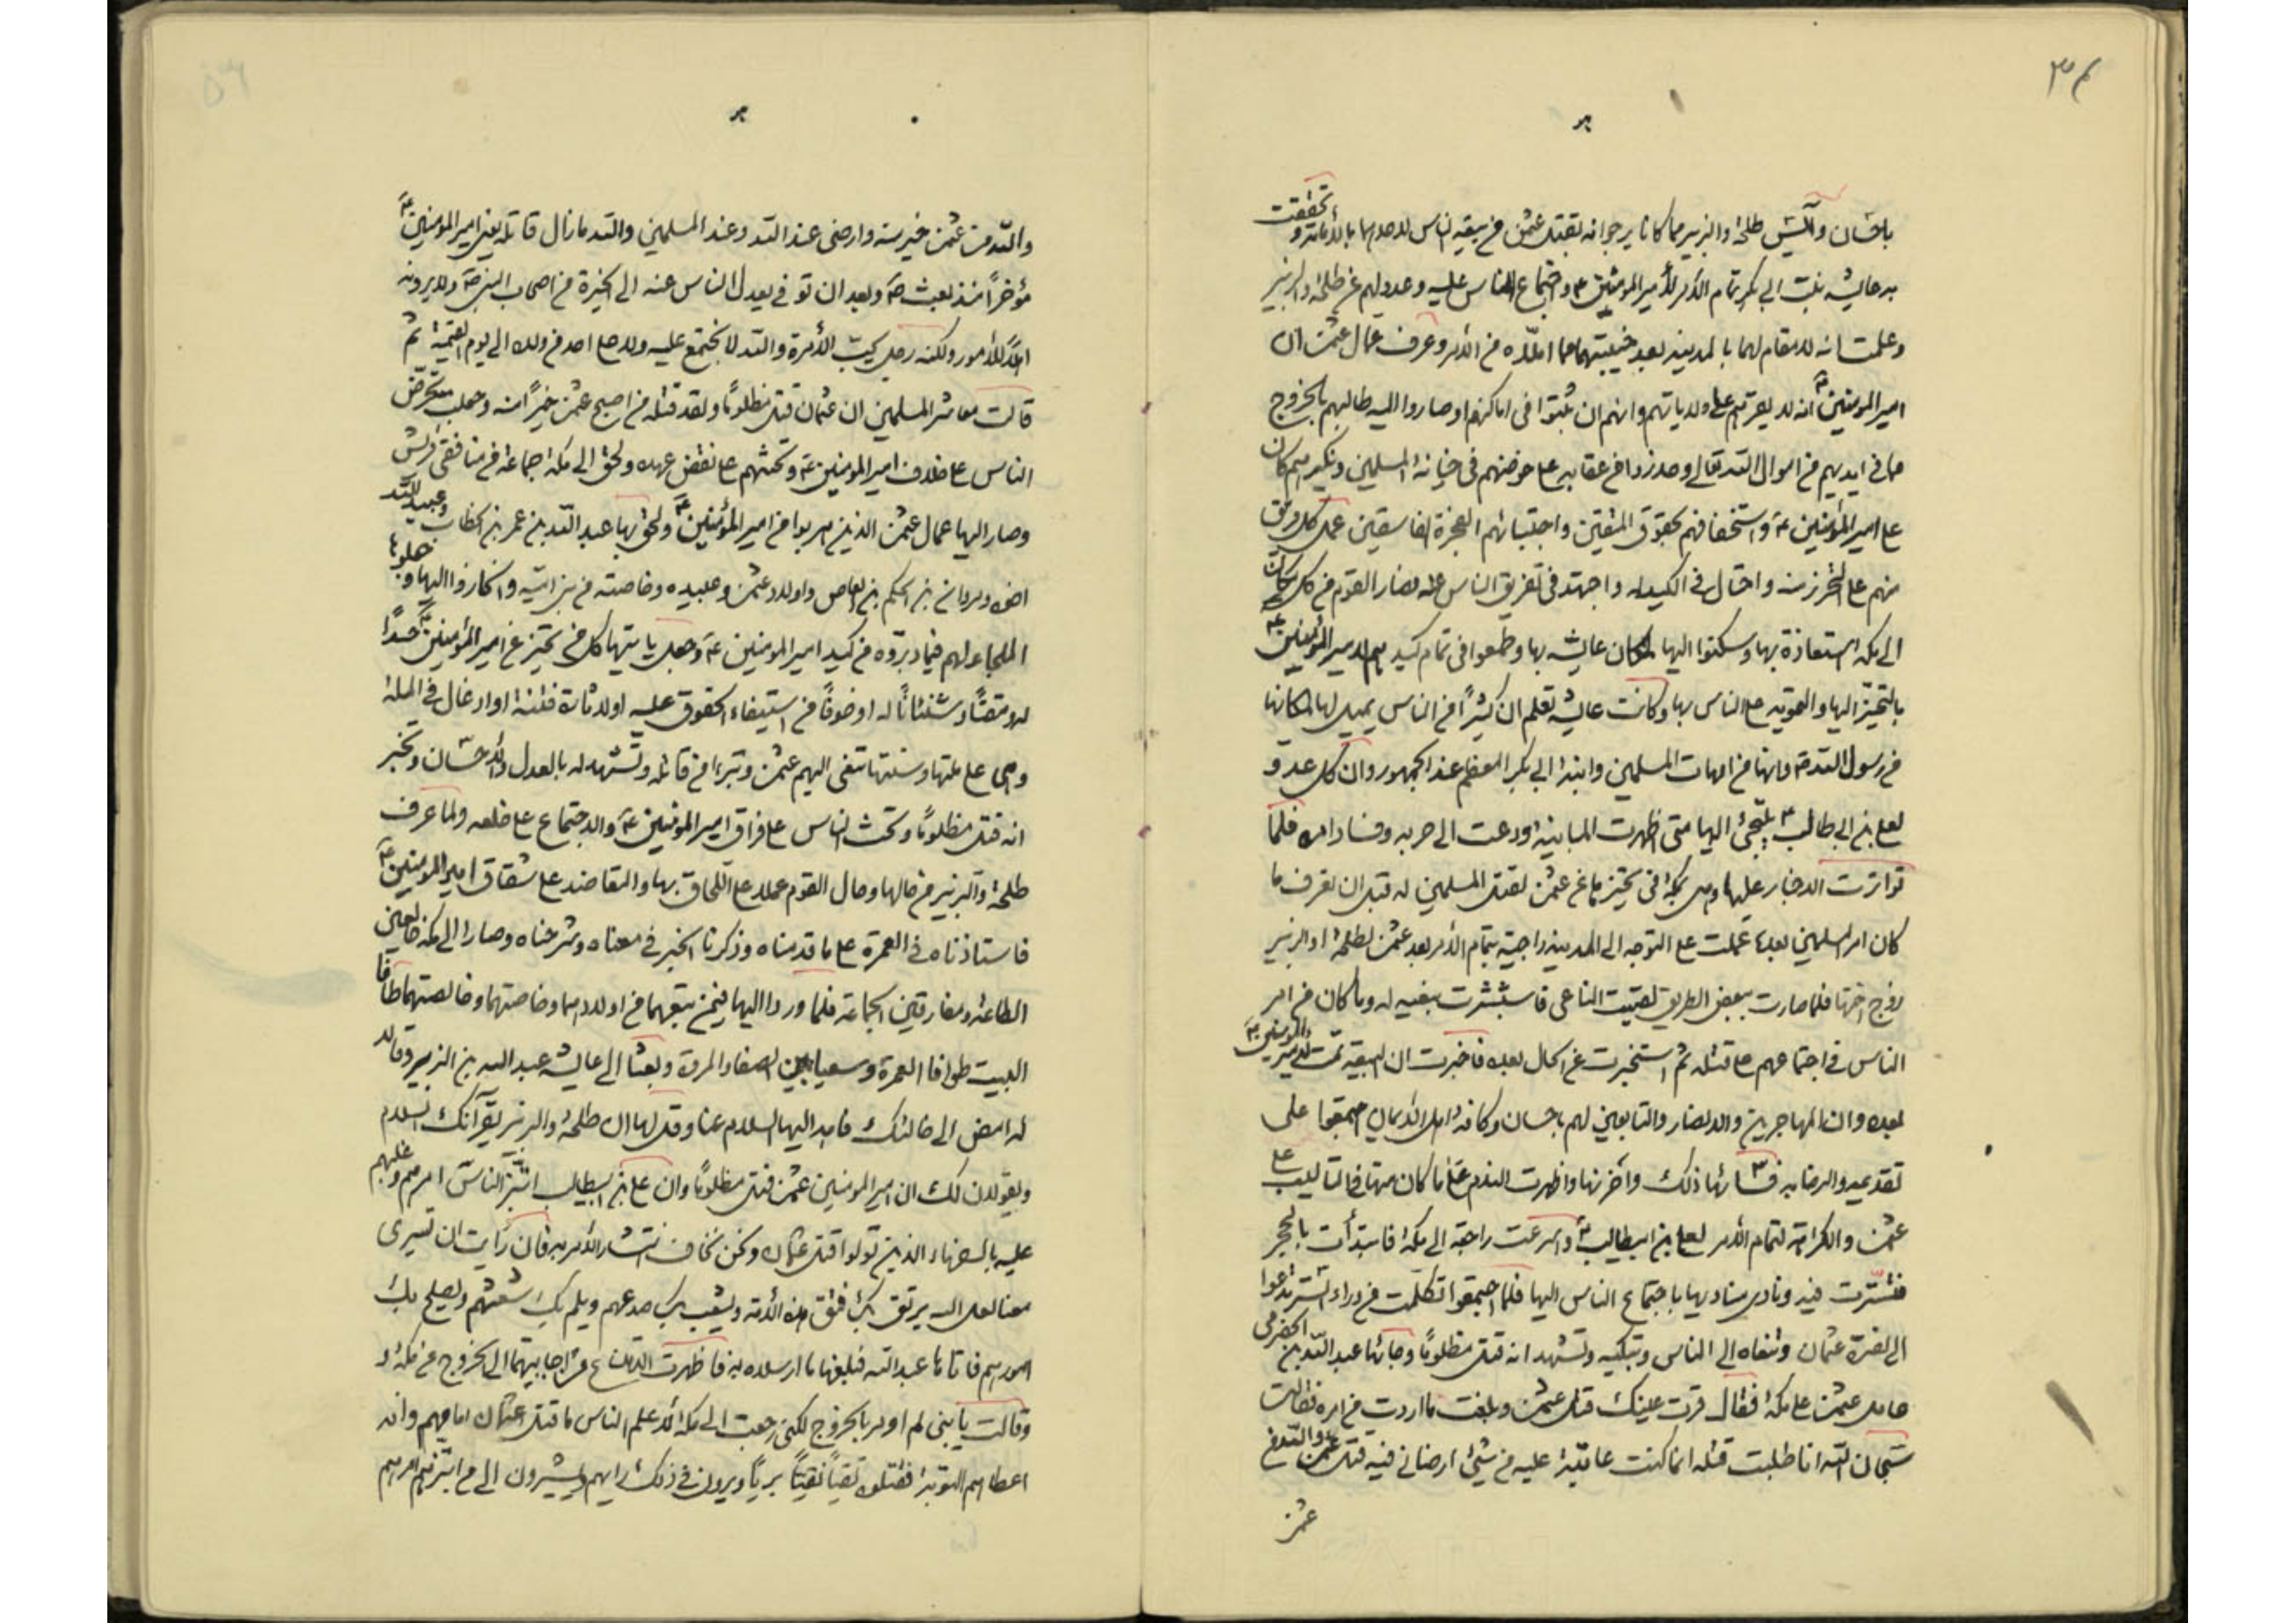 باحسان وآيس طلحة والزبير مما كانا يرجوانه بقتل عثمن من بيعة الناس لاحدهما بالامامة وتحققت
به عايشة بنت ابي بكر تمام الأمر لأمير المؤمنين ع واجتماع الناس عليه وعدولهم عن طلحة والزبير
وعلمت انه لا مقام لهما بالمدينه بعد خيبتهما مما املاه من الأمر وعرف عمال عثمن ان
امير المؤمنين ع انه لا يقرهم على ولاياتهم وانهم ان ثبتوا في اماكنهم او صاروا اليه طالبهم بالخروج
مما في ايديهم من اموال الله تعالى وحذروا من عقابه على خوضهم في خيانة المسلمين وتكبرهم كان
على امير المؤمنين ع واستخفافهم بحقوق المتقين واجتبائهم الفجرة الفاسقين عمل كل فريق
منهم على التحرز منه واحتال في الكيد له واجتهد في تفريق الناس عنه فصار القوم من كل مكان
الى مكه استعاذة بها وسكنوا اليها لمكان عايشه بها وطمعوا في تمام كيدهم لامير المؤمنين ع
بالتحيز اليها والتمويه على الناس بها وكانت عايشه تعلم ان كثيرًا من الناس يميل لها لمكانها
من رسول الله ص وانها من امهات المسلمين وابنة ابي بكر المعظم عند الجمهور وان كل عدو
لعلي بن ابي طالب ع يلتجئ اليها متى اظهرت المباينة ودعت الى حربه وفساد امره فلما
تواترت الاخبار عليها وهي بمكة في تحيزها عن عثمن لقتل المسلمين له قبل ان تعرف ما
كان امر المسلمين بعده عملت على التوجه الى المدينه راجية بتمام الأمر بعد عثمن لطلحة او الزبير
زوج اختها فلما صارت ببعض الطريق لقيت الناعي فاستبشرت بنعيه له وما كان من امر
الناس في اجتماعهم على قتله ثم استخبرت عن الحال بعده فاخبرت ان البيعة تمت لأمير المؤمنين ع
بعده وان المهاجرين والانصار والتابعين لهم باحسان وكافة اهل الايمان اجمعوا على
تقديمه والرضا به فساءها ذلك واحزنها واظهرت الندم على ما كان منها في التأليب على
عثمن والكراهة لتمام الأمر لعلي بن ابيطالب ع واسرعت راجعة الى مكة فابتدأت بالحجر
فتسترت فيه ونادى مناديها باجتماع الناس اليها فلما اجتمعوا تكلمت من وراء الستر تدعوا
الى نصرة عثمان وتنعاه الى الناس وتبكيه وتشهد انه قتل مظلومًا وجائها عبد الله بن الحضرمي
عامل عثمن على مكة فقال قرت عينك قتل عثمن وبلغت ما اردت من امره فقالت
سبحان الله انا طلبت قتله انما كنت عاتبة عليه من شيء ارضاني فيه قتل والله من
عثمن
والله من عثمن خير منه وارضى عند الله وعند المسلمين والله ما زال قاتله يعني امير المؤمنين ع
مؤخرًا منذ بعث ص وبعد ان توفي يعدل الناس عنه الى الخيرة من اصحاب النبي ص ولا يرونه
اهلًا للأمور ولكنه رجل يحب الأمرة والله لا يجتمع عليه ولا على احد من ولده الى يوم القيمة ثم
قالت معاشر المسلمين ان عثمان قتل مظلومًا ولقد قتله من اصبع عثمن خيرًا منه وجعلت تحرض
الناس على خلاف امير المؤمنين ع وتحثهم على نقض عهده ولحق الى مكة جماعة من منافقي قريش
وصار اليها عمال عثمن الذين هربوا من امير المؤمنين ع ولحق بها عبد الله بن عمر بن الخطاب وعبيد الله
اخوه ومروان بن الحكم بن العاص واولاد عثمن وعبيده وخاصته من بني امية وانحازوا اليها وجعلوها
الملجأ لهم فيما دبروه من كيد امير المؤمنين ع وجعل يأتيها كل من تحيز عن امير المؤمنين ع حسدًا
له ومقتًا وشنئانًا له او خوفًا من استيفاء الحقوق عليه او لاثارة فتنة او ادغال في الملة
وهي على ملتها وسنتها تنعى اليهم عثمن وتتبرء من قاتله وتشهد له بالعدل والاحسان وتخبر
انه قتل مظلومًا وتحث الناس على فراق امير المؤمنين ع والاجتماع على خلعه ولما عرف
طلحة والزبير من حالها وحال القوم عملا على اللحاق بها والتعاضد على شقاق امير المؤمنين ع
فاستاذناه في العمرة على ما قدمناه وذكرنا الخبر في معناه وشرحناه وصارا الى مكة خالعين
الطاعة ومفارقين الجماعة فلما وردا اليها فيمن تبعهما من اولادهما وخاصتهما وخالصتهما طافا
البيت طواف العمرة وسعيا بين الصفا والمروة وبعثا الى عايشة عبد الله بن الزبير وقالا
له امض الى خالتك فاهد اليها السلام عنا وقل لها ان طلحة والزبير يقرآنك السلام
ويقولان لك ان امير المؤمنين عثمن قتل مظلومًا وان علي بن ابيطالب ابتز الناس امرهم وغلبهم
عليه بالسفهاء الذين تولوا قتل عثمان ونحن نخاف انتشار الأمر به فان رأيت ان تسيري
معنا لعل الله يرتق بك فتق هذه الأمة ويشعب بك صدعهم ويلم بك شعثهم ويصلح بك
امورهم فاتاها عبد الله فبلغها ما ارسلاه به فاظهرت الامتناع من اجابتهما الى الخروج عن مكة
وقالت يا بني لم آمر بالخروج لكني رجعت الى مكة لأعلم الناس ما فعل بعثمان امامهم وانه
اعطاهم التوبة فقتلوه تقيًا نقيًا بريًا ويرون في ذلك رايهم ويشيرون الى من ابتزهم امرهم